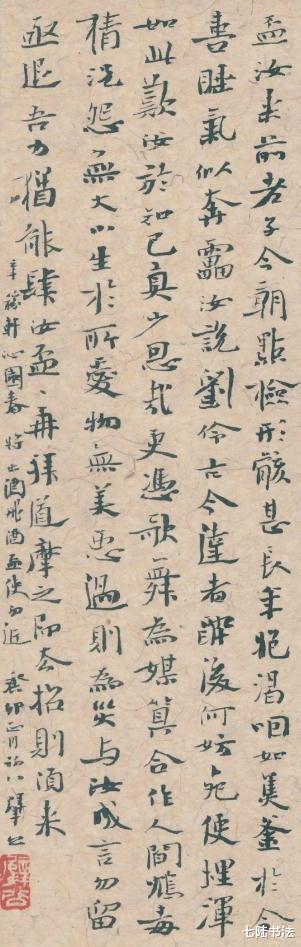 盃汝来前老子今朝點檢形骸甚長年抱渴咽如焦釜於今
喜睡氣似奔靁汝說劉伶古今達者醉後何妨死便埋渾
如此歎汝於知己真少恩哉更憑歌舞為媒算合作人間鴆毒
猜況怨無大小生於所愛物無美惡過則為災与汝成言勿留
亟退吾力猶能肆汝盃〻再拜道麾之即去招則須来
辛稼軒沁園春 将止酒戒酒盃使勿近 癸卯正月初八
七陆书法